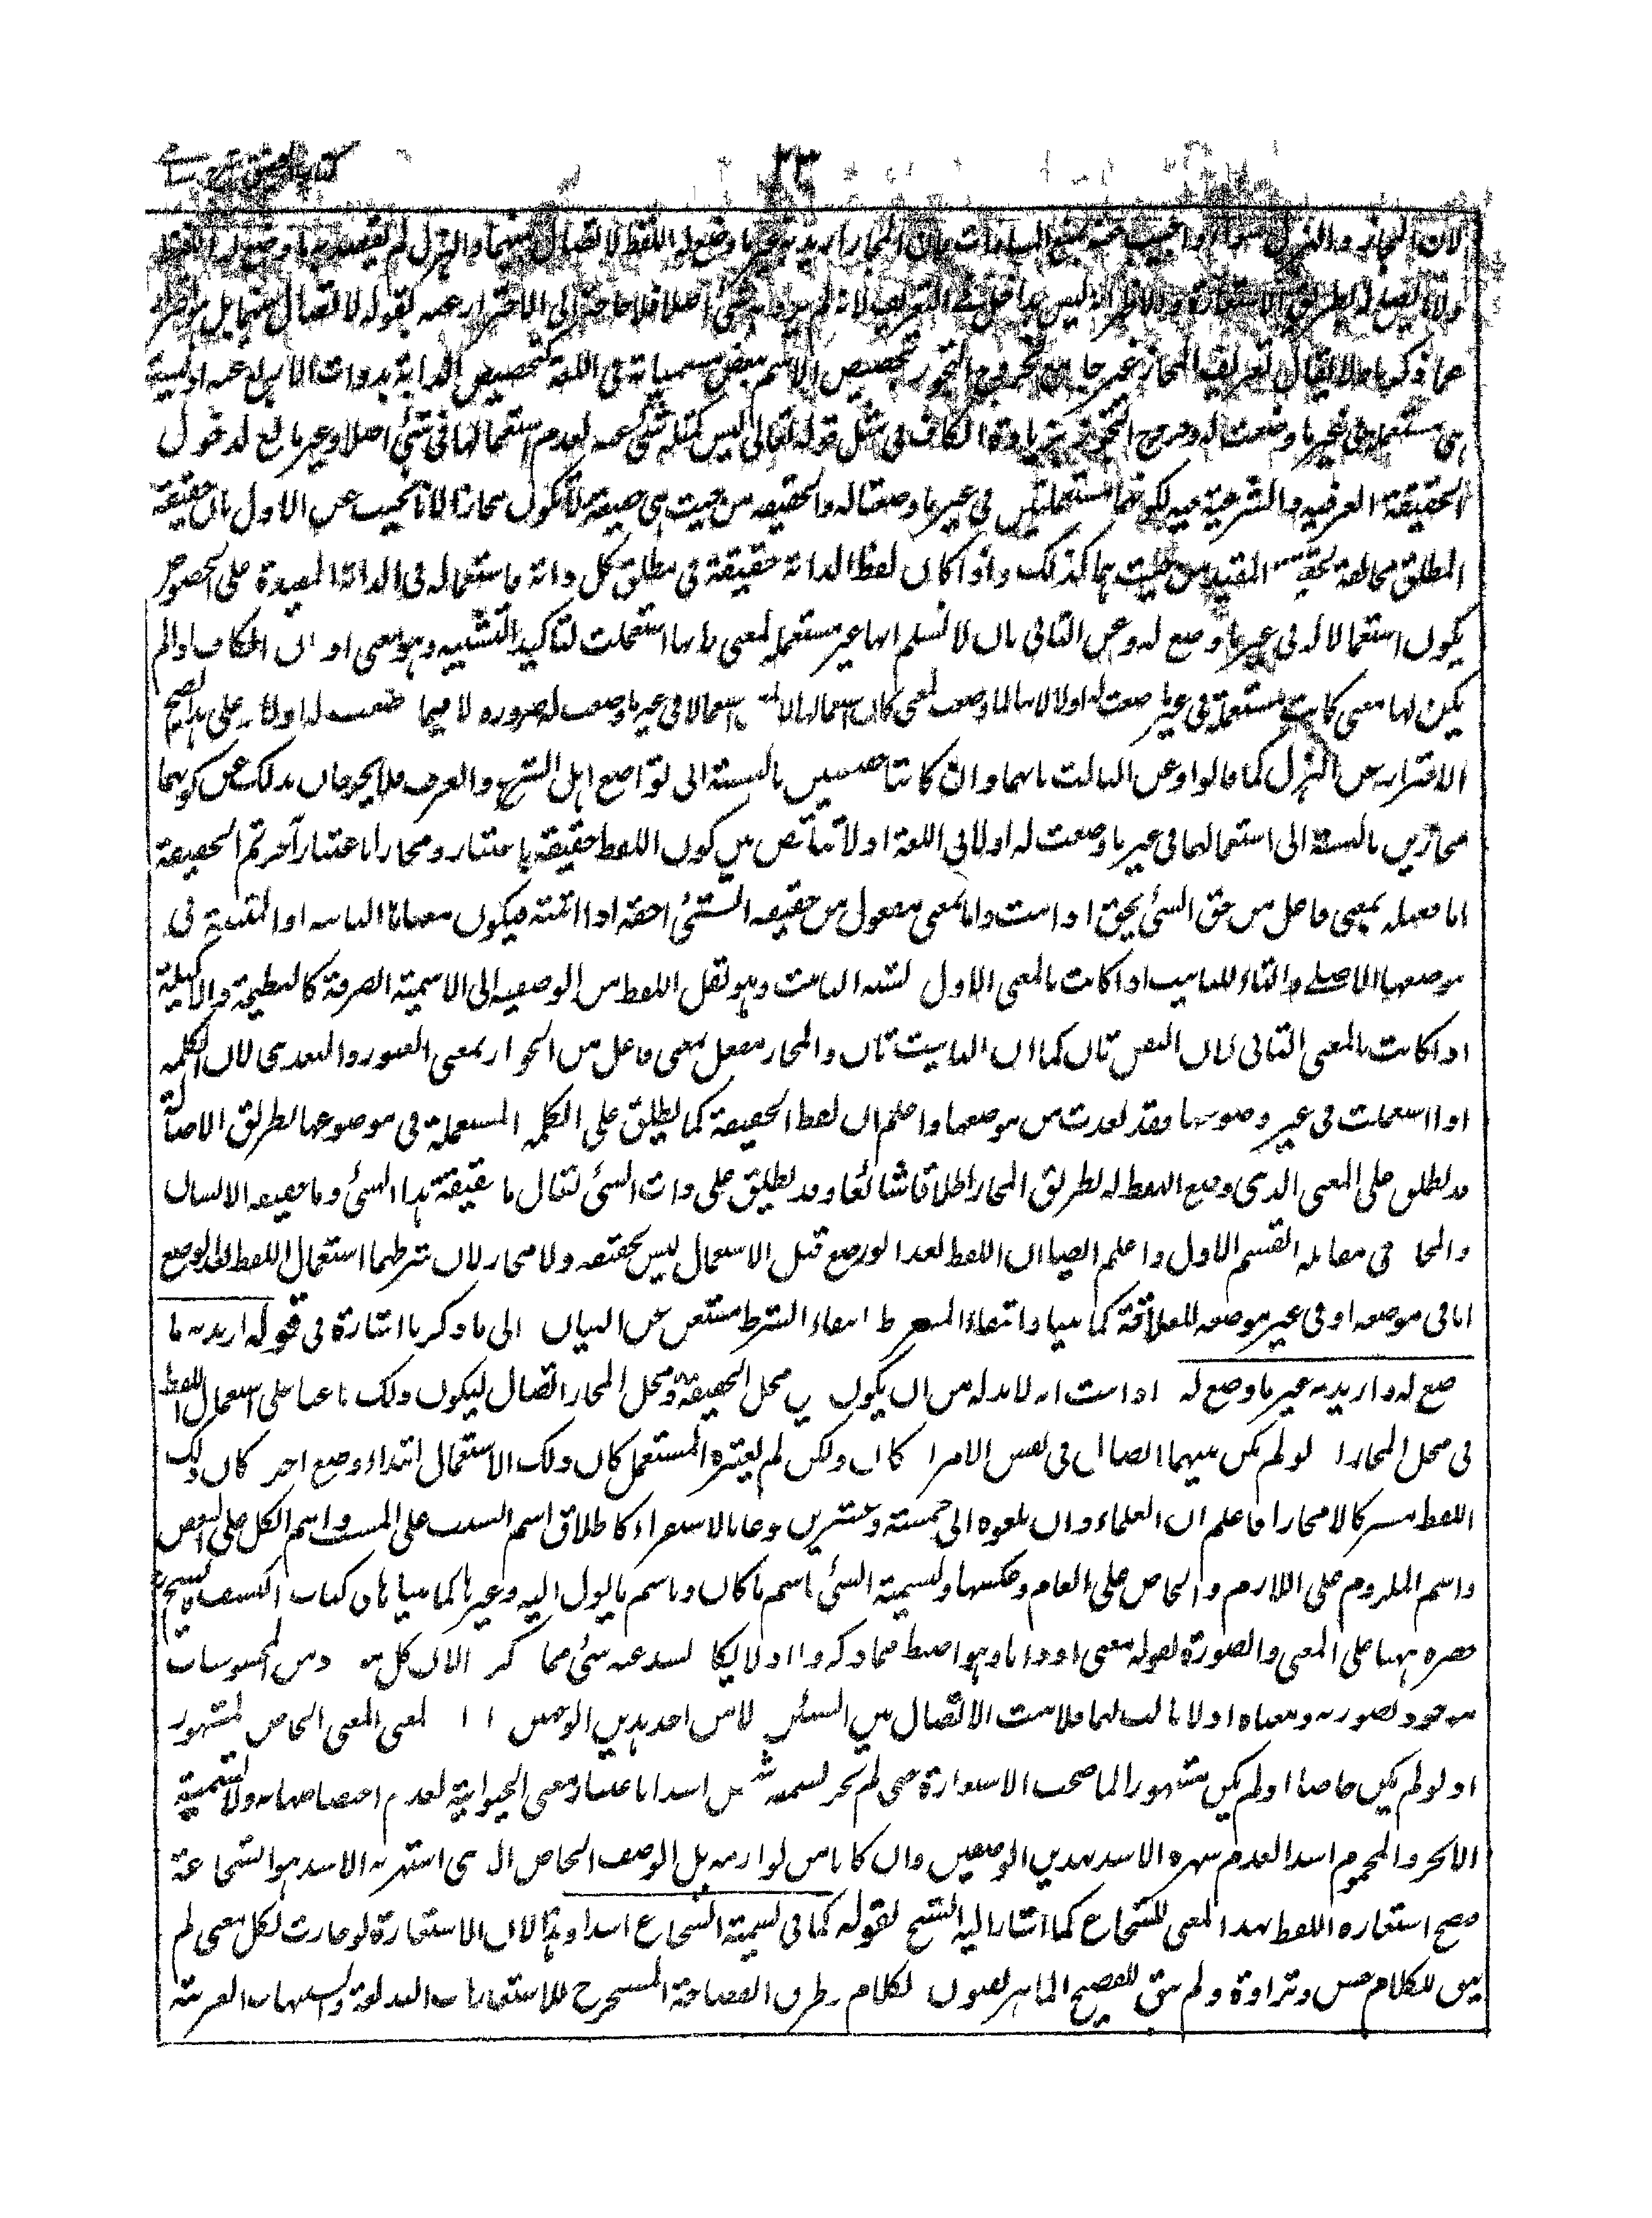 كتاب التحقيق شرح
٢٣
لان المجاز والهزل سواء واجيب عنه بمنع المساوات فان المجاز اريد به غير ما وضع له اللفظ لاتصال بينهما والهزل لم يقصد به ما وضع له اللفظ
ولا ما يصلح له بطريق الاستعارة والاظهر انه ليس بداخل في التعريف لانه لم يرد به شئ اصلا فلا حاجة الى الاحتراز عنه بقوله لاتصال بينهما بل هو
ما ذكرنا ولا يقال تعريف المجاز غير جامع لخروج التجوز بتخصيص الاسم ببعض مسمياته في اللغة كتخصيص الدابة بذوات الاربع عنه اذ ليست
هي مستعملة في غير ما وضعت له وخروج التجوز بزيادة الكاف في مثل قوله تعالى ليس كمثله شئ عنه لعدم استعمالها في شئ اصلا وغير مانع لدخول
الحقيقة العرفية والشرعية فيه لكونهما مستعملتين في غير ما وضعتا له والحقيقة من حيث هي حقيقة لا تكون مجازا لانا نجيب عن الاول بان حقيقة
المطلق مخالفة لحقيقة المقيد من حيث هما كذلك واذا كان لفظ الدابة حقيقة في مطلق كل دابة فاستعماله في الدابة المقيدة على الخصوص
يكون استعمالا له في غير ما وضع له وعن الثاني بان لا نسلم انها غير مستعملة لمعنى بل انها استعملت لتاكيد التشبيه وهو معنى او ان الكاف اذا لم
يكن لها معنى كانت مستعملة في غير ما وضعت له اولا لانها لما وضعت لمعنى كان استعمالها لا لمعنى استعمالا في غير ما وضعت له ضرورة لا فيما وضعت له اولا وعلى هذا لا يصح
الاحتراز عن الهزل كما قالوا وعن الثالث بانهما وان كانتا حقيقتين بالنسبة الى تواضع اهل الشرع والعرف فلا يخرجان بذلك عن كونهما
مجازين بالنسبة الى استعمالهما في غير ما وضعت له اولا في اللغة اذ لا تناقض بين كون اللفظ حقيقة باعتبار ومجازا باعتبار آخر ثم الحقيقة
اما فعيلة بمعنى فاعل من حق الشئ يحق اذا ثبت واما بمعنى مفعول من حقيقة الشئ احقه اذا اثبته فيكون معناها الثابتة او المثبتة في
موضعها الاصلي والتاء للتانيث اذا كانت بالمعنى الاول لشبه التانيث وهو نقل اللفظ من الوصفية الى الاسمية الصرفة كالنطيحة والاكيلة
اذا كانت بالمعنى الثاني لان النقص ثان كما ان التانيث ثان والمجاز مفعل بمعنى فاعل من الجواز بمعنى العبور والتعدي لان الكلمة
اذا استعملت في غير موضوعها فقد تعدت من موضعها واعلم ان لفظ الحقيقة كما يطلق على الكلمة المستعملة في موضوعها بطريق الاصالة
قد يطلق على المعنى الذي وضع اللفظ له بطريق المجاز اطلاقا شائعا وقد يطلق على ذات الشئ يقال ما حقيقة هذا الشئ وما حقيقة الانسان
والمجاز في مقابلة القسم الاول واعلم ايضا ان اللفظ بعد الوضع قبل الاستعمال ليس بحقيقة ولا مجاز لان شرطهما استعمال اللفظ بعد الوضع
اما في موضعه او في غير موضعه للعلاقة كما بينا وانتفاء المشروط انتفاء الشرط مستغن عن البيان الى ما ذكرنا اشارة في قوله اريد به ما
وضع له واريد به غير ما وضع له اذا ثبت انه لابد له من ان يكون بين محل الحقيقة ومحل المجاز اتصال ليكون ذلك باعثا على استعمال اللفظ
في محل المجاز اذ لو لم يكن بينهما اتصال في نفس الامر او كان ولكن لم يعتبره المستعمل كان ذلك الاستعمال ابتداء وضع آخر وكان ذلك
اللفظ مشتركا لا مجازا فاعلم ان العلماء وان بلغوه الى خمسة وعشرين نوعا بالاستقراء كاطلاق اسم السبب على المسبب واسم الكل على البعض
واسم الملزوم على اللازم والخاص على العام وعكسها وتسمية الشئ باسم ما كان وباسم ما يؤول اليه وغيرها كما بيناها في كتاب الكشف فالشيخ
حصره ههنا على المعنى والصورة بقوله معنى او ذاتا وهو اضبط مما ذكروا اذ لا يكاد يشذ عنه شئ مما ذكر الا لان كل موجود من المحسوسات
موجود بصورته ومعناه اذ لا ثالث لهما فلا يثبت الاتصال بين الشيئين الا من احد هذين الوجهين يعني المعنى الخاص المشهور
اذ لو لم يكن خاصا او لم يكن مشهورا لما صحت الاستعارة حتى لم تجز تسمية شخص اسدا باعتبار معنى الحيوانية لعدم اختصاصها به ولا تسمية
الابخر والمحموم اسدا لعدم شهرة الاسد بهذين الوصفين وان كانا من لوازمه بل الوصف الخاص الذي اشتهر به الاسد هو الشجاعة
فصح استعارة اللفظ بهذا المعنى للشجاع كما اشار اليه الشيخ بقوله كما في تسمية الشجاع اسدا وهذا لان الاستعارة لو جازت لكل معنى لم
يبق للكلام حسن وطراوة ولم يبق للفصيح الماهر بفنون الكلام وطرق الفصاحة المستخرج للاستعارات البديعة والتشبيهات الغريبة